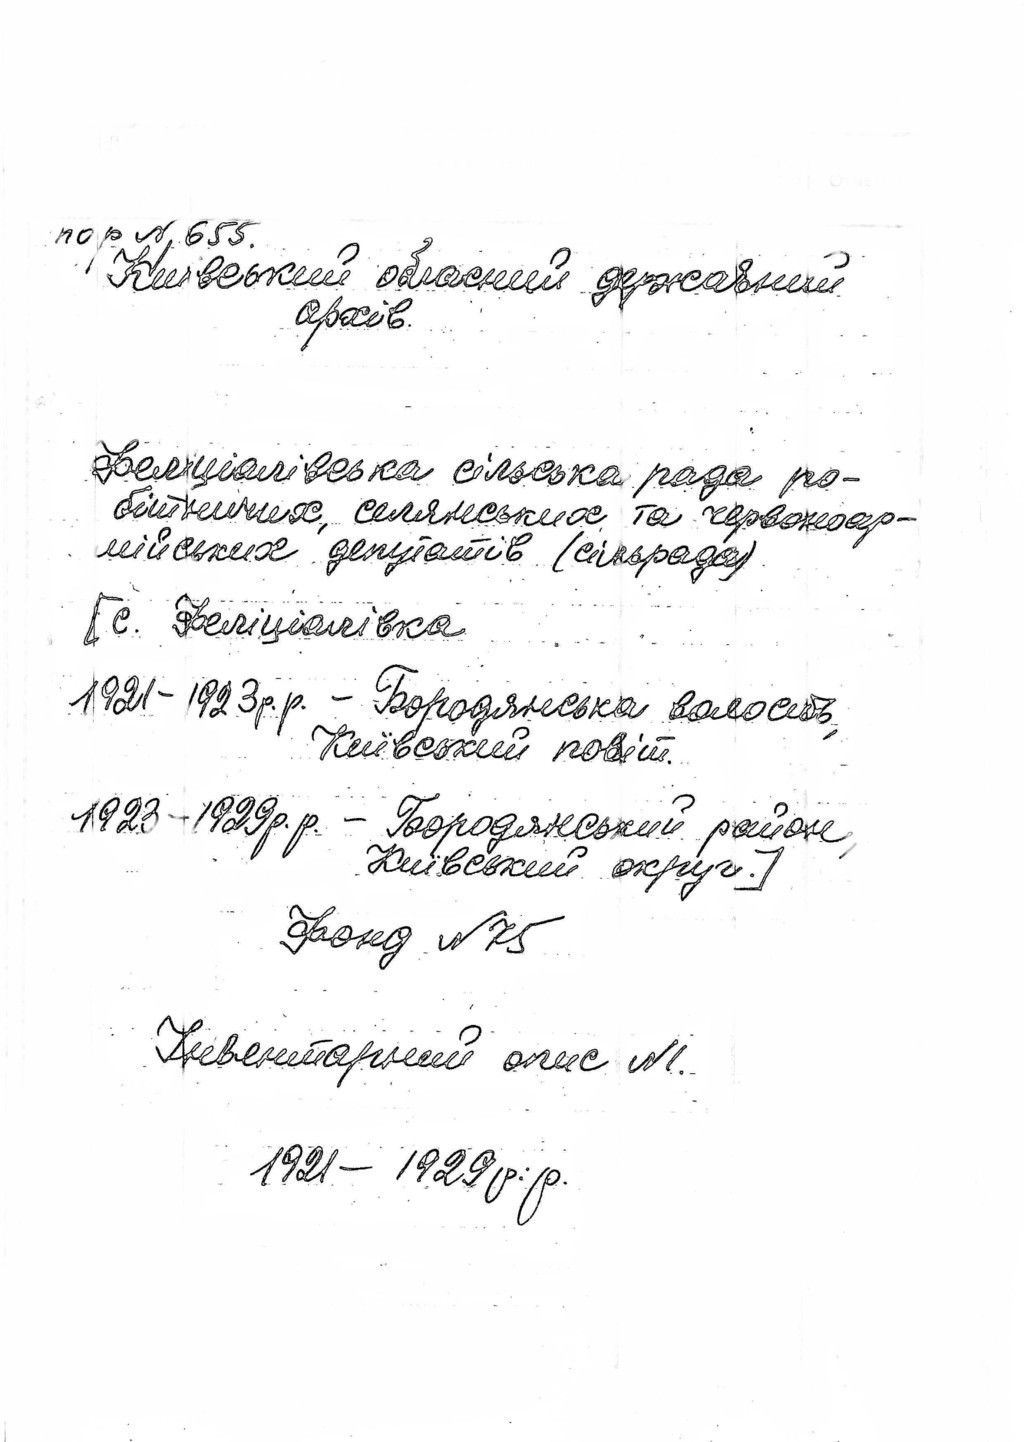 пор №655.
Київський обласний державний
архів.
Феліціалівська сільська рада ро-
бітничих, селянських та червоноар-
мійських депутатів (сільрада)
[с. Феліціалівка
1921-1923р.р. - Бородянська волость,
Київський повіт.
1923-1929р.р. - Бородянський район,
Київський округ.]
Фонд №75
Інвентарний опис №1.
1921-1929р.р.